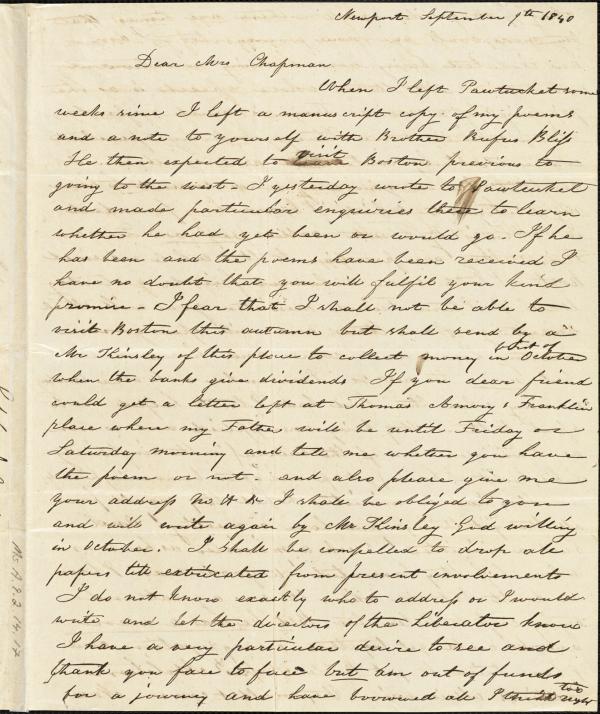 Newport September 9th 1840
Dear Mrs Chapman
When I left Pawtucket some
weeks sime I left a manuscript copy of my poems
and a note to yourself with Brother Rufus Bliss
He then expected to visit Boston previous to
going to the west - I yesterday wrote to Pawtucket
and made particular enquiries there to learn
whether he had yet been or would go. If he
has been and the poems have been received I
have no doubt that you will fulfil your kind
promise - I fear that I shall not be able to
visit Boston this autumn but shall send by a
Mr Kinsley of this place to collect money in first of October
when the banks give dividends If you dear friend
could get a letter left at Thomas Amory's Franklin
place where my Father will be until Friday or
Saturday morning and tell me whether you have
the poem or not - and also please give me
your address No & & I shall be obliged to you
and will write again by Mr Kinsley God willing
in October. I shall be compelled to drop all
papers till extricated from present involvements
I do not know exactly who to address or I would
write and let the directors of the Liberator know
I have a very particular desire to see and
thank you face to face but am out of funds
for a journey and have borrowed all I think too right
Ms.A.9.2.14.47